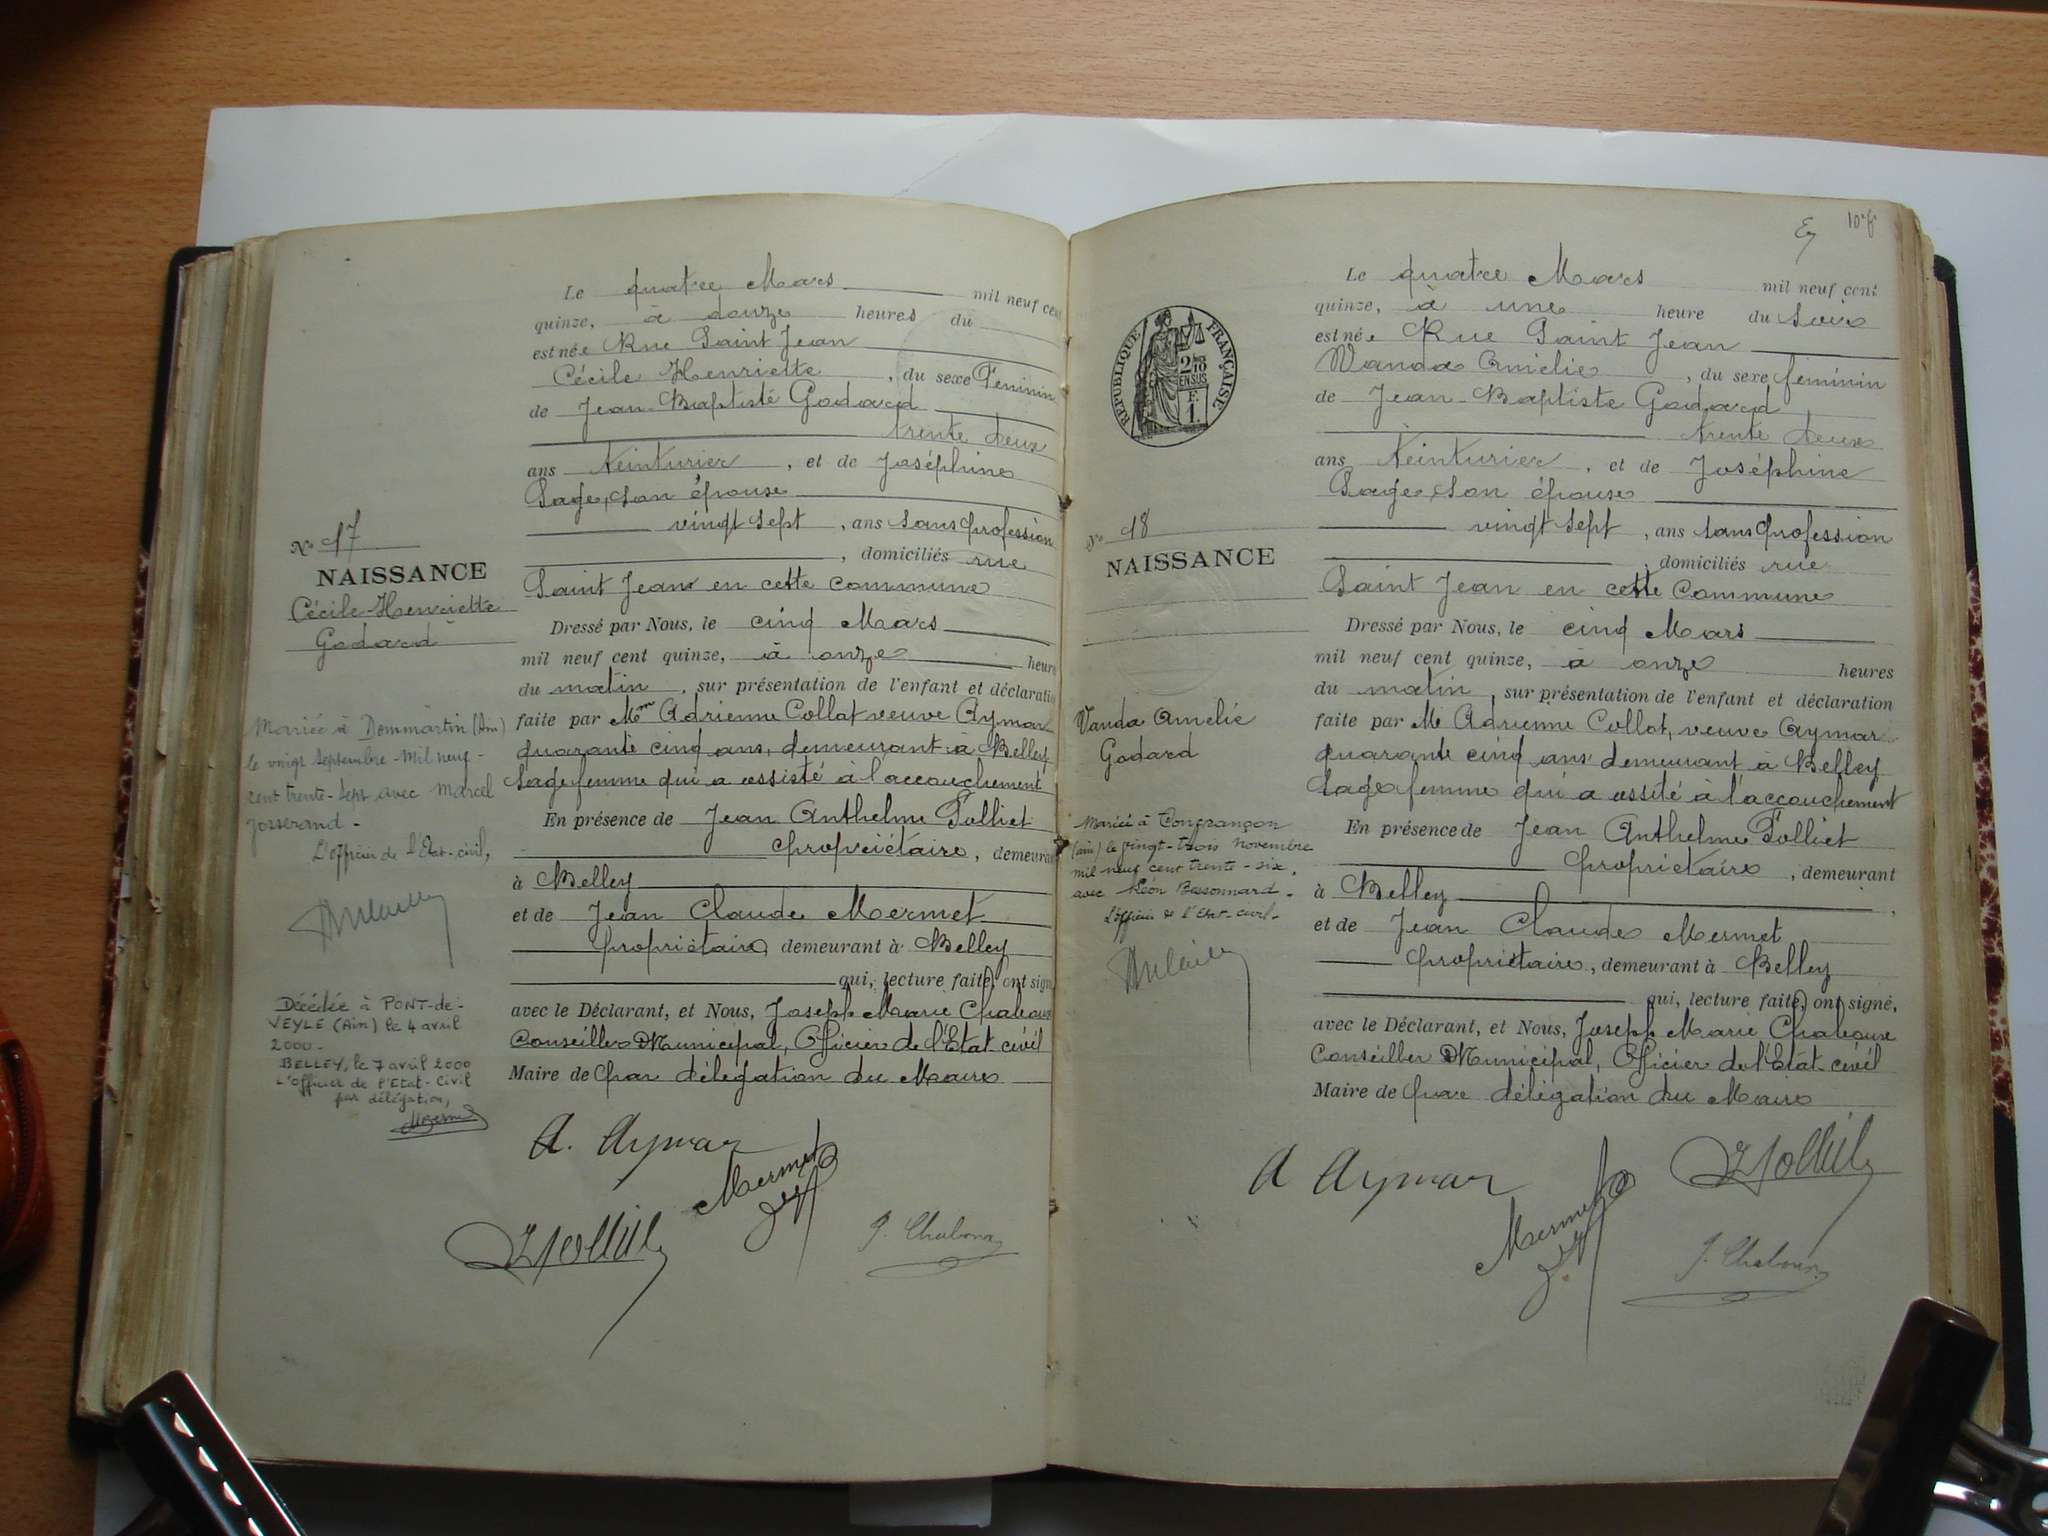 Le quatre Mars mil neuf cent
quinze, à douze heures du
est née Rue Saint Jean
Cécile Henriette, du sexe Féminin
de Jean-Baptiste Godard
trente deux
ans teinturier, et de Joséphine
Sage, son épouse
vingt sept, ans sans profession
, domiciliés rue
Saint Jean en cette commune
Dressé par Nous, le cinq Mars
mil neuf cent quinze, à onze heure
du matin, sur présentation de l'enfant et déclaratio
faite par Mme Adrienne Collat veuve Aymar
quarante cinq ans, demeurant à Belley
sage femme qui a assisté à l'accouchement
En présence de Jean Anthelme Folliet
propriétaire, demeurant
à Belley
et de Jean Claude Mermet
propriétaire, demeurant à Belley
qui, lecture faite, ont signé
avec le Déclarant, et Nous, Joseph Marie Chaboux
Conseiller Municipal, Officier de l'Etat-civil
Maire de par délégation du Maire
A. Aymar
Mermet
J. Chaboux
No 17
NAISSANCE
Cécile-Henriette
Godard
Mariée à Dommartin (Ain)
le vingt septembre-mil neuf-
cent trente-sept avec Marcel
Josserand-
L'officier de l'Etat-civil,
Décédée à PONT-de-
VEYLE (Ain) le 4 avril
2000-
BELLEY, le 7 avril 2000
L'officier de l'Etat-Civil
par délégation,
Le quatre Mars mil neuf cent
quinze, à une heure du soir
est née Rue Saint Jean
Wanda Amélie, du sexe féminin
de Jean-Baptiste Godard
trente deux
ans teinturier, et de Joséphine
Sage, son épouse
vingt sept, ans sans profession
, domiciliés rue
Saint Jean en cette Commune
Dressé par Nous, le cinq Mars
mil neuf cent quinze, à onze heures
du matin, sur présentation de l'enfant et déclaration
faite par Me Adrienne Collot, veuve Aymar
quarante cinq ans demeurant à Belley
sage femme qui a assité à l'accouchement
En présence de Jean Anthelme Folliet
propriétaire, demeurant
à Belley
et de Jean Claude Mermet
propriétaire, demeurant à Belley
qui, lecture faite, ont signé,
avec le Déclarant, et Nous, Joseph Marie Chaboux
Conseiller Municipal, Officier de l'Etat-civil
Maire de par délégation du Maire
A Aymar
Mermet
J. Chaboux
RÉPUBLIQUE FRANÇAISE
2/10
EN SUS
F.
1.
No 18
NAISSANCE
Wanda Amélie
Godard
Mariée à Confrançon
(ain) le vingt-trois novembre
mil neuf cent trente-six,
avec Léon Bessonnard-
L'officier de l'Etat-civil-